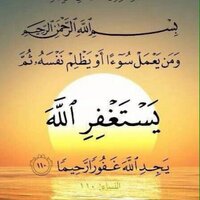 بِسْمِ اللَّهِ الرَّحْمَٰنِ الرَّحِيمِ
وَمَن يَعْمَلْ سُوٓءًا أَوْ يَظْلِمْ نَفْسَهُۥ ثُمَّ
يَسْتَغْفِرِ اللَّهَ
يَجِدِ اللَّهَ غَفُورًا رَّحِيمًا ١١٠
النساء ١١٠